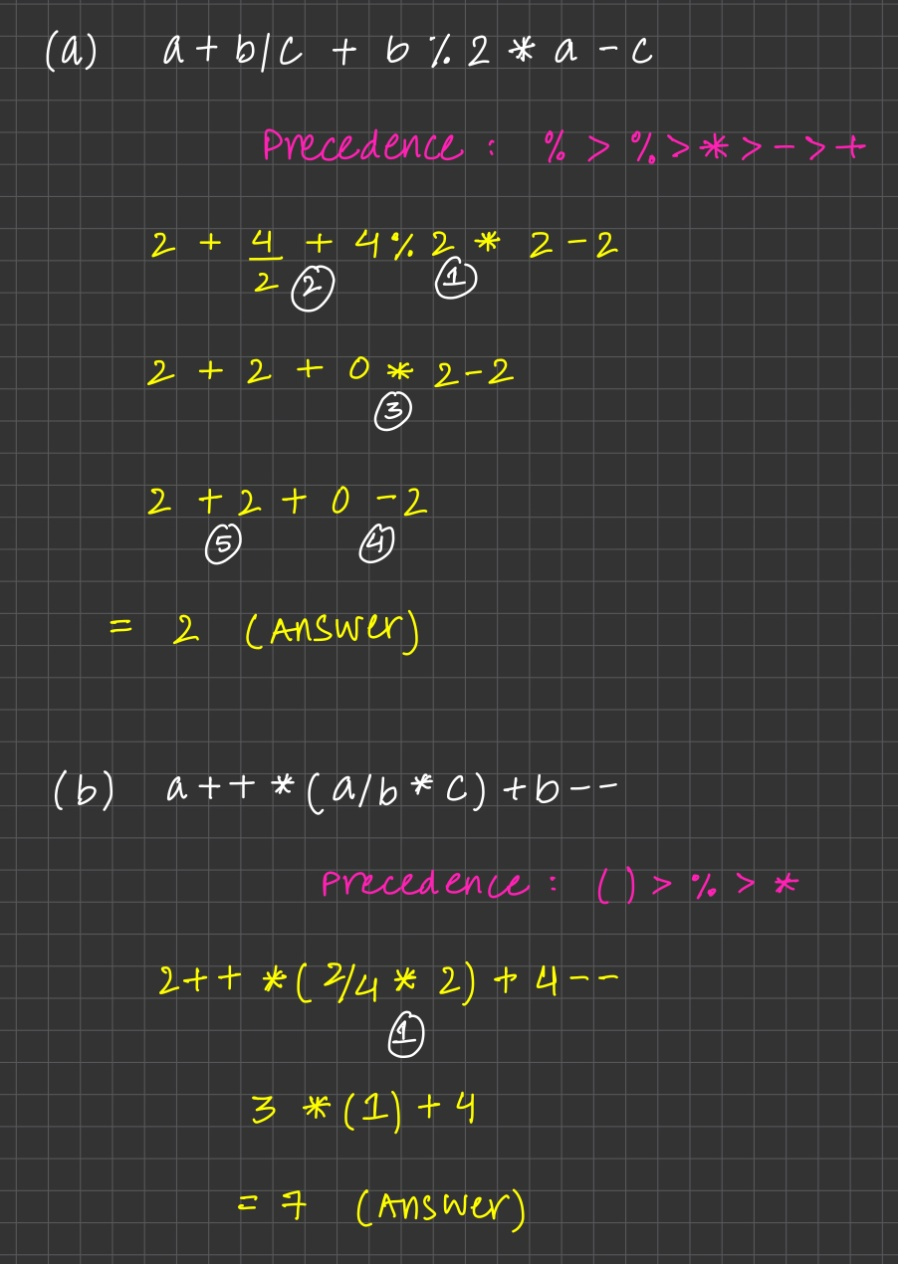 (a) a + b/c + b % 2 * a - c
Precedence : % > % > * > - > +
2 + 4/2 + 4 % 2 * 2 - 2
② ①
2 + 2 + 0 * 2 - 2
③
2 + 2 + 0 - 2
⑤ ④
= 2 (Answer)
(b) a++ * (a/b * c) + b--
Precedence : ( ) > % > *
2++ * (2/4 * 2) + 4--
①
3 * (1) + 4
= 7 (Answer)